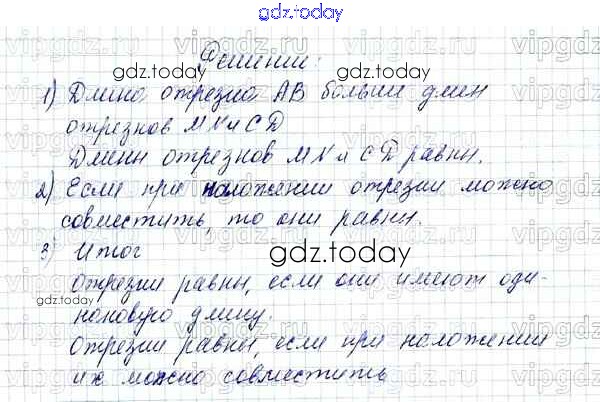 gdz.today
Решение:
gdz.today
1) Длина отрезка АВ больше длин
отрезков MN и CD
Длины отрезков MN и CD равны.
2) Если при наложении отрезки можно
совместить, то они равны.
3) Итог
gdz.today
отрезки равны, если они имеют оди-
gdz.today
наковую длину.
Отрезки равны, если при наложении
их можно совместить